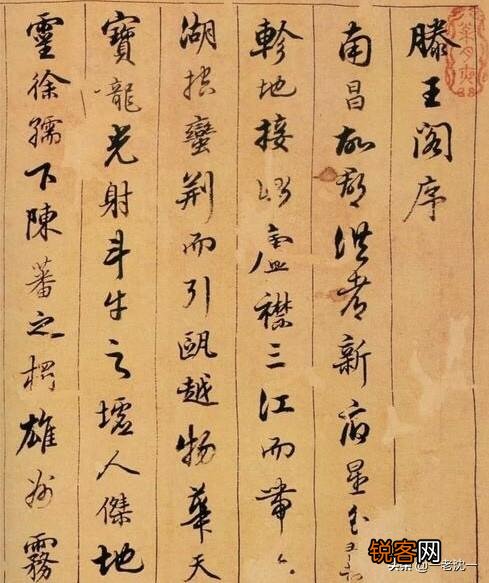 滕王閣序
南昌故郡洪都新府星分翼
軫地接衡廬襟三江而帶五
湖控蠻荆而引甌越物華天
寶龍光射斗牛之墟人傑地
靈徐孺下陳蕃之榻雄州霧
锐客网
头条@一老沈一